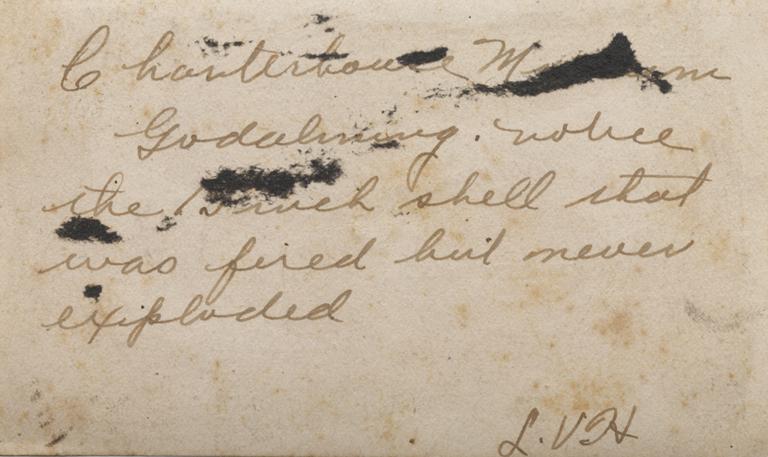 Charterhouse Museum
Godalming. notice
the inch shell that
was fired but never
exploded
L.VH